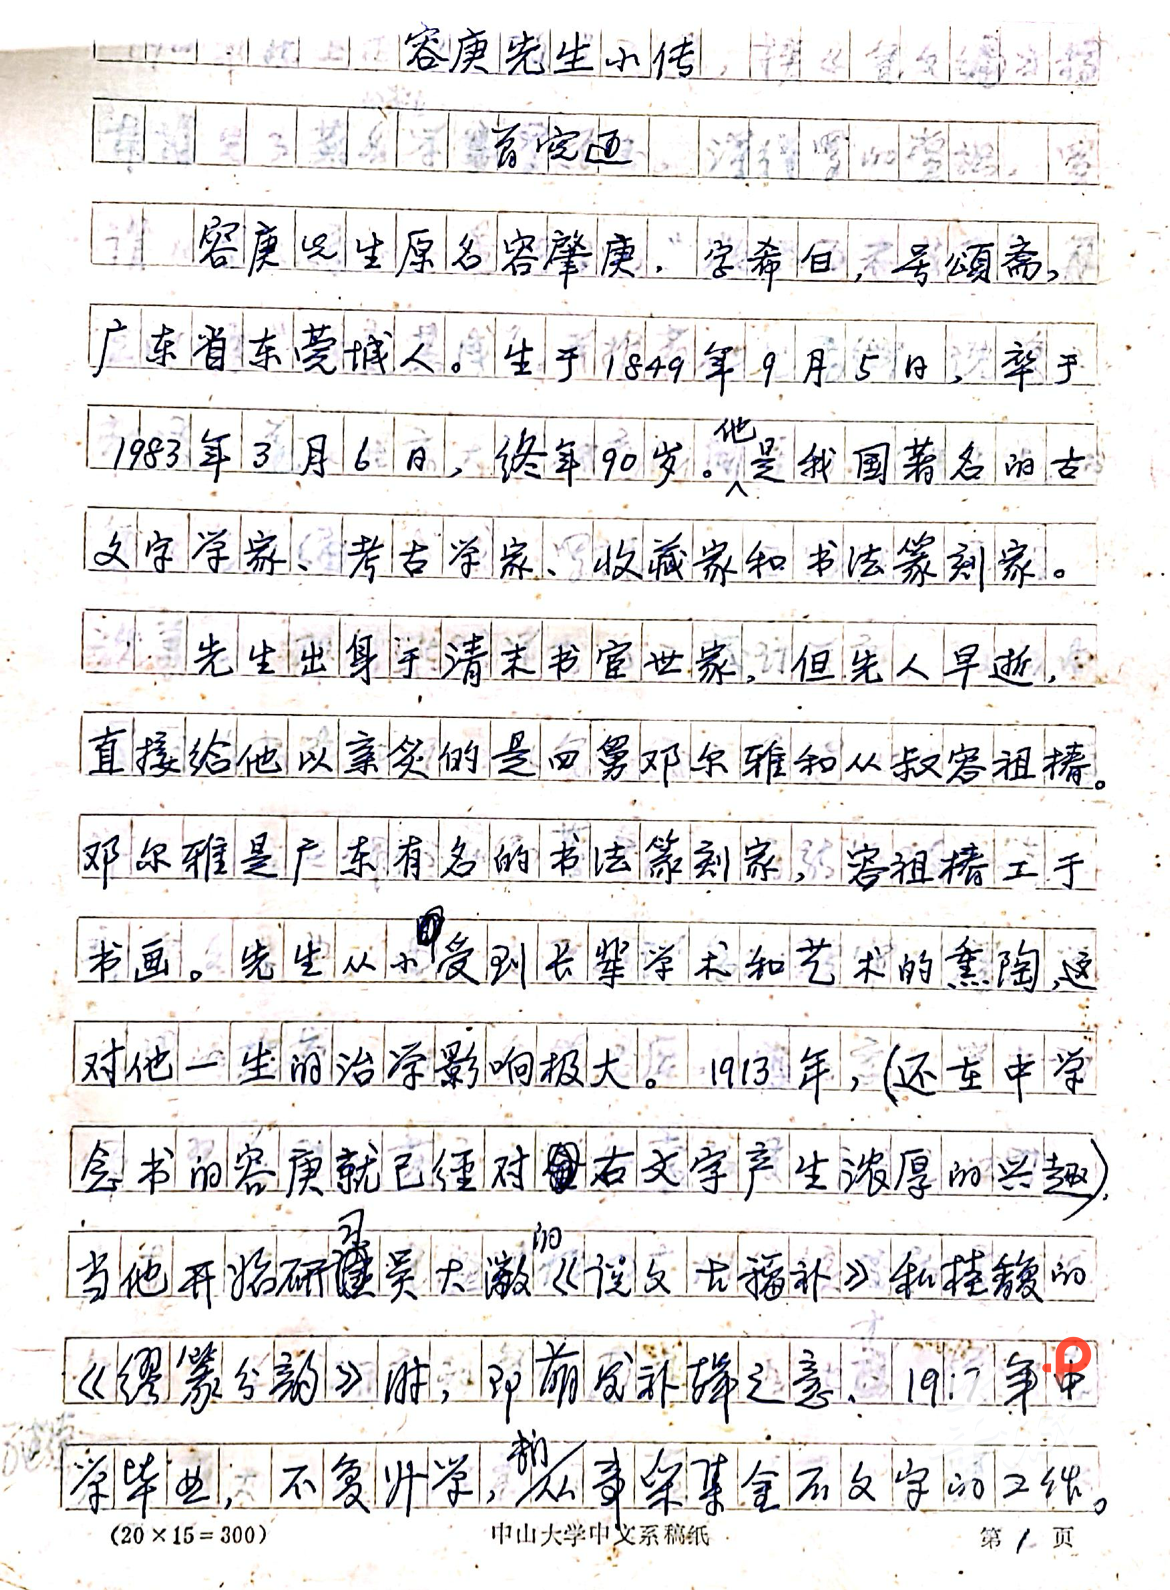 容庚先生小传
曾宪通
容庚先生原名容肇庚，字希白，号颂斋，
广东省东莞城人。生于1849年9月5日，卒于
1983年3月6日，终年90岁。他是我国著名的古
文字学家、考古学家、收藏家和书法篆刻家。
先生出身于清末书宦世家，但先人早逝，
直接给他以亲炙的是四舅邓尔雅和从叔容祖椿。
邓尔雅是广东有名的书法篆刻家，容祖椿工于
书画。先生从小受到长辈学术和艺术的熏陶，这
对他一生的治学影响极大。1913年，(还在中学
念书的容庚就已经对古文字产生浓厚的兴趣)，
当他开始研习吴大澂的《说文古籀补》和桂馥的
《缪篆分韵》时，即萌发补辑之意。1917年中
学毕业，不复升学，从事采集金石文字的工作。
(20×15=300)
中山大学中文系稿纸
第1页